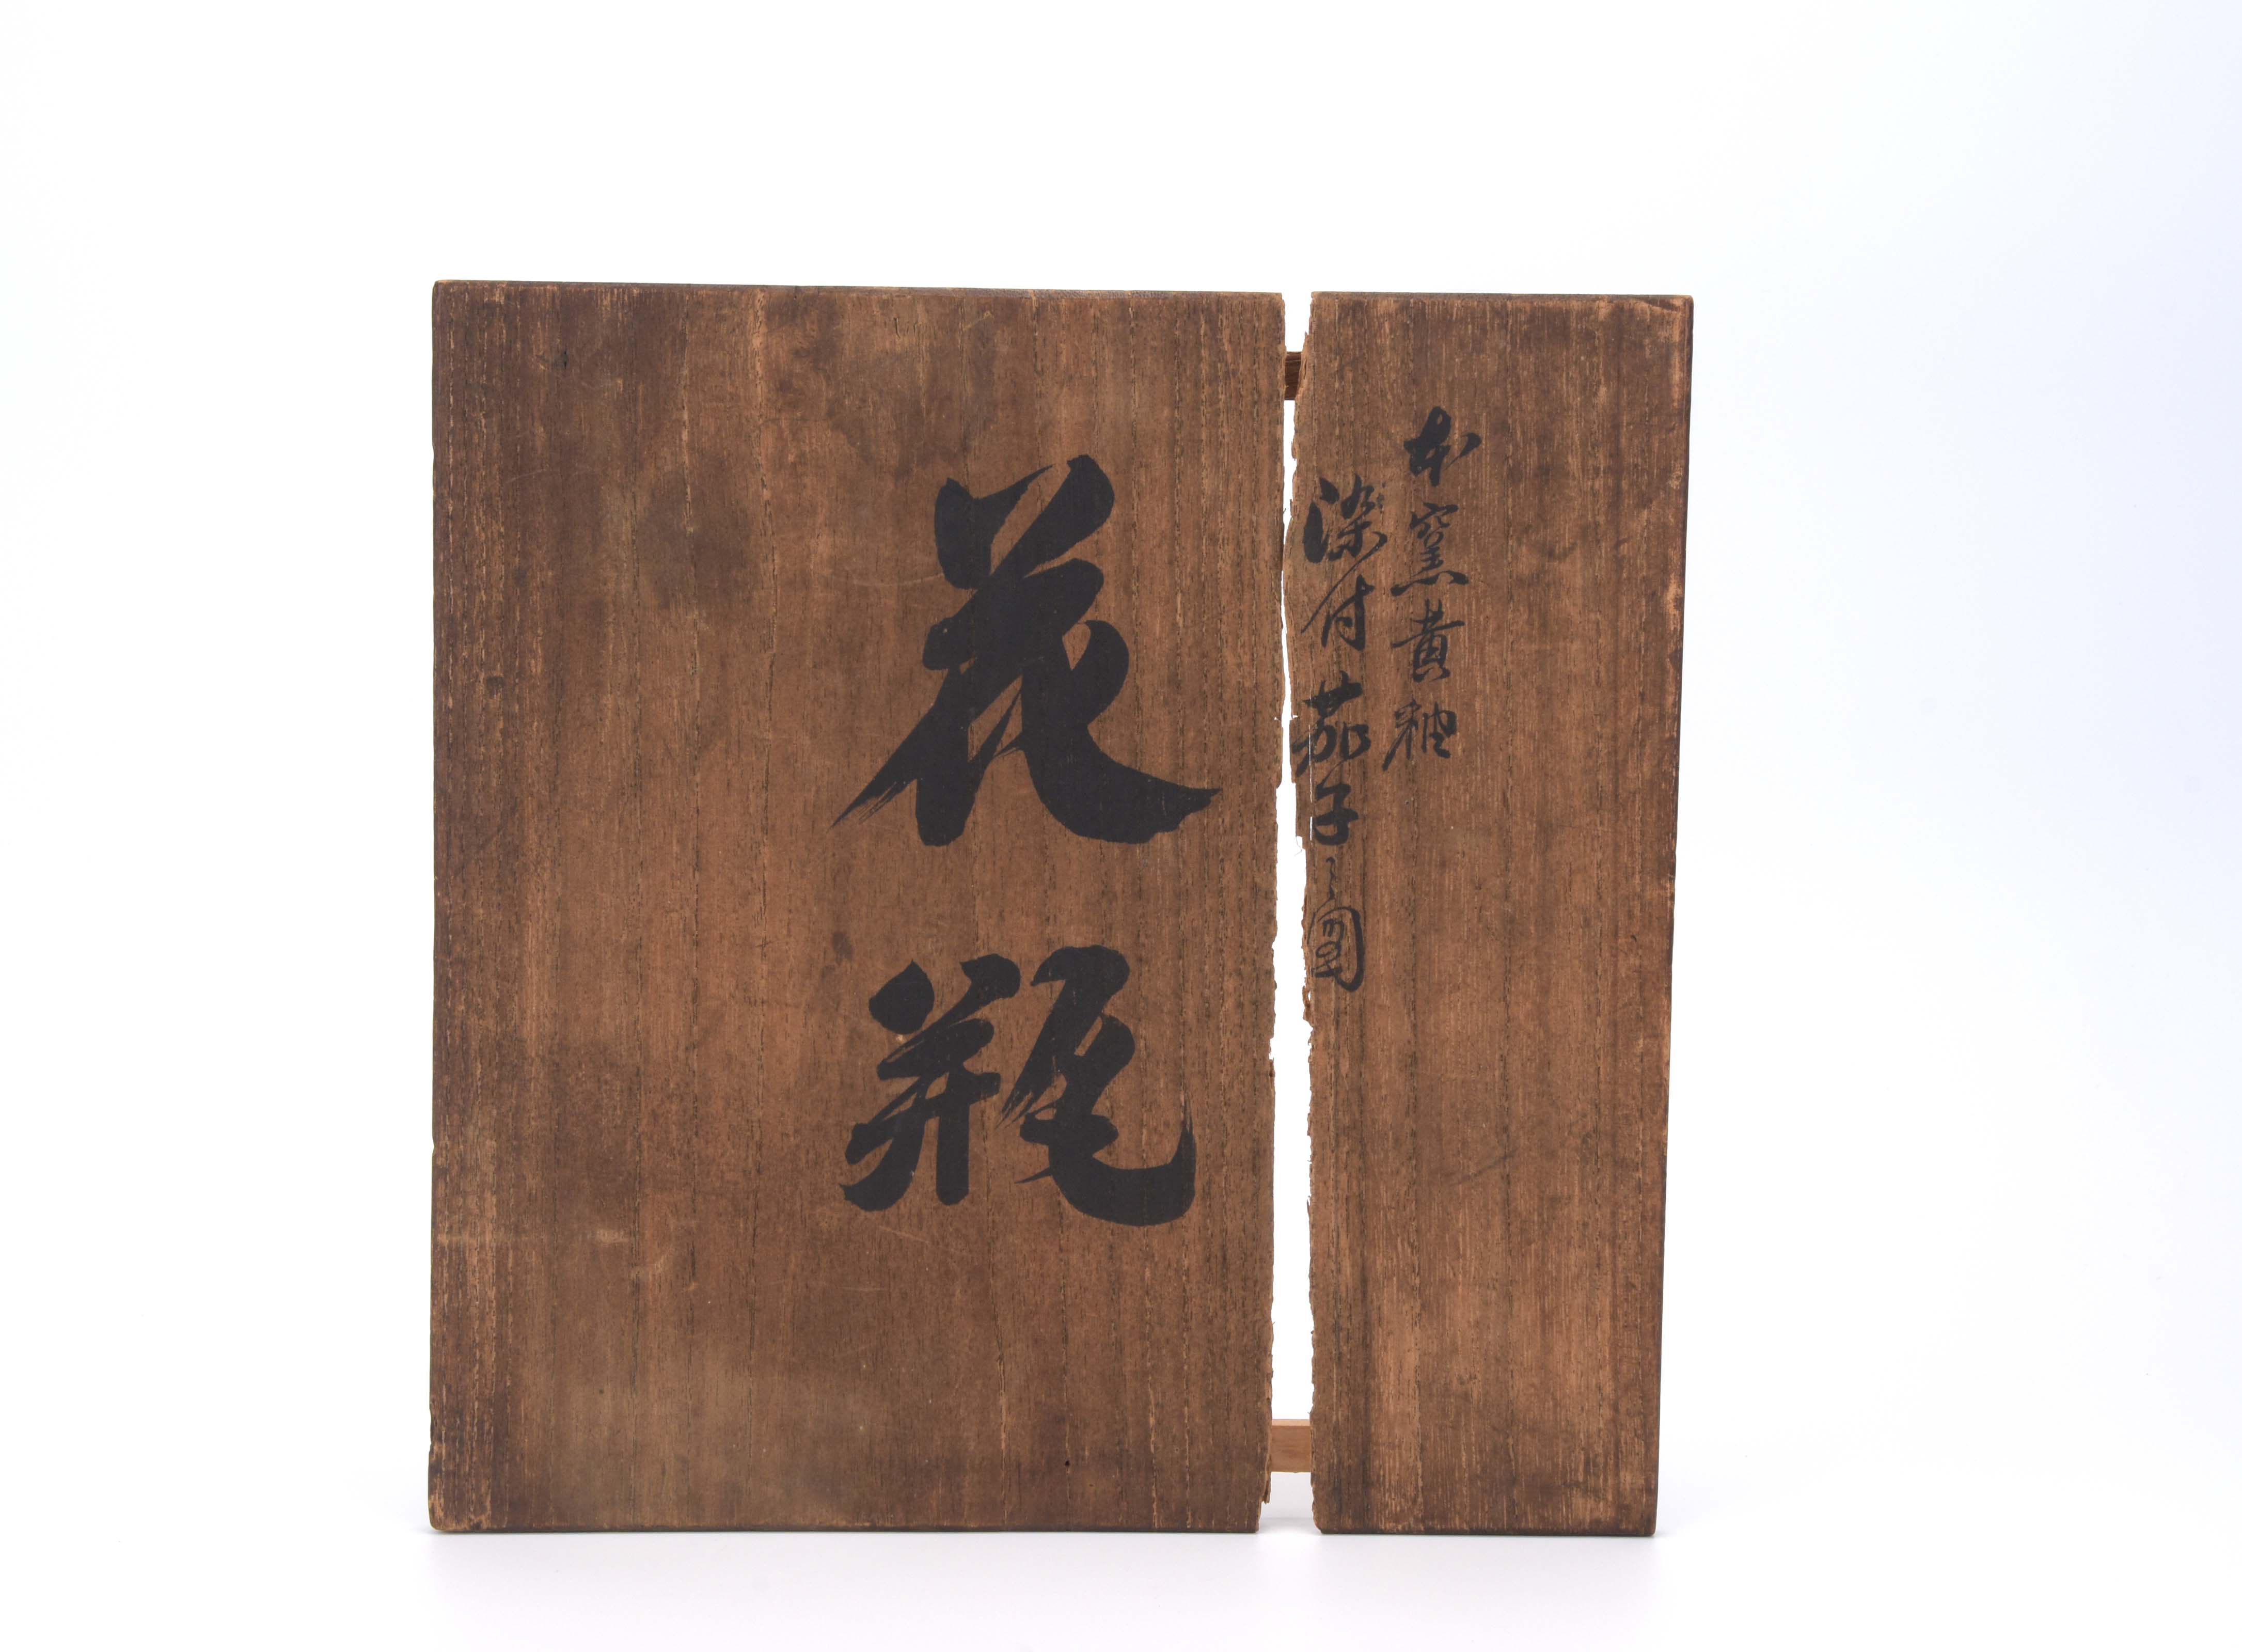 本窯黄釉
染付茄子之図
花瓶